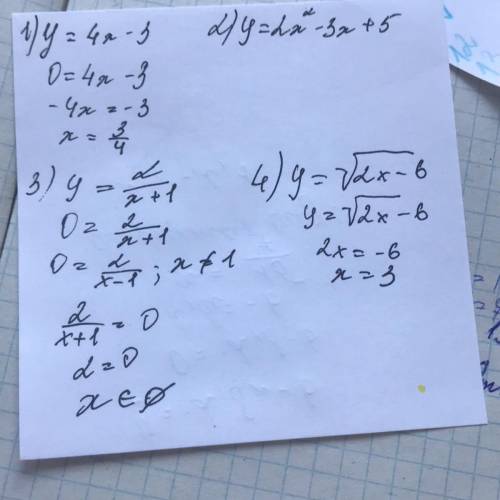 1) y = 4x - 3
0 = 4x - 3
-4x = -3
x = 3/4
2) y = 2x² - 3x + 5
3) y = 2/(x + 1)
0 = 2/(x + 1)
0 = 2/(x - 1) ; x ≠ 1
2/(x + 1) = 0
2 = 0
x ∈ ∅
4) y = √(2x - 6)
y = √(2x) - 6
2x = -6
x = 3